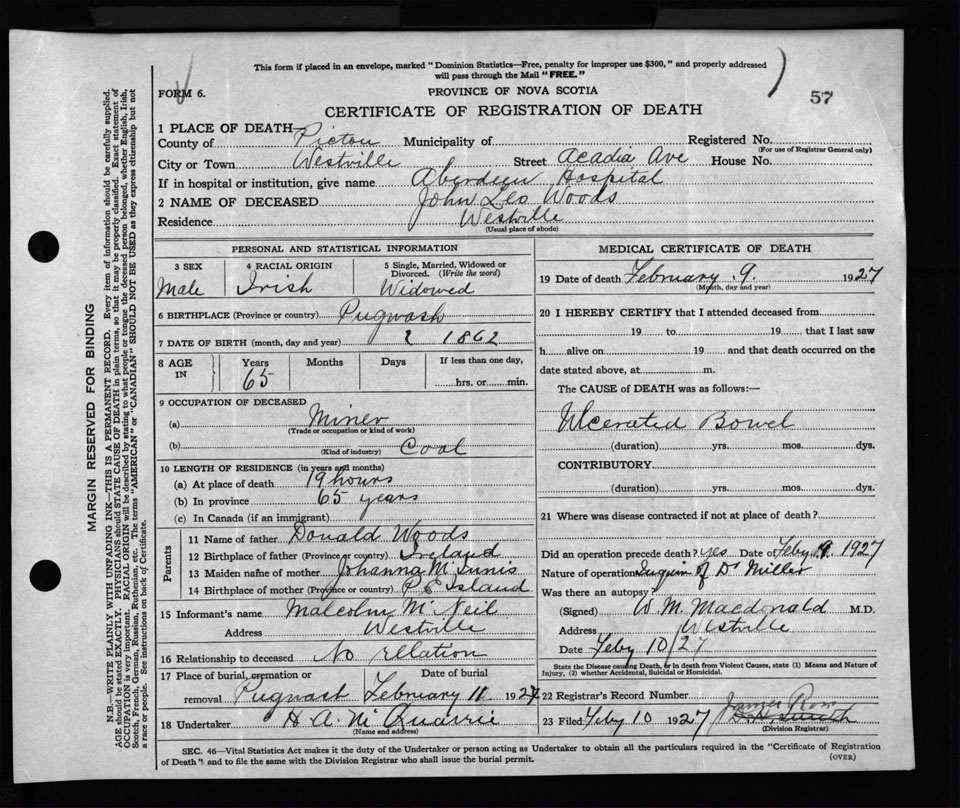 This form if placed in an envelope, marked "Dominion Statistics—Free, penalty for improper use $300," and properly addressed
will pass through the Mail "FREE."
FORM 6.
PROVINCE OF NOVA SCOTIA
57
CERTIFICATE OF REGISTRATION OF DEATH
1 PLACE OF DEATH
County of Pictou Municipality of Registered No.
(For use of Registrar General only)
City or Town Westville Street Acadia Ave House No.
If in hospital or institution, give name Aberdeen Hospital
2 NAME OF DECEASED John Leo Woods
Residence Westville
(Usual place of abode)
PERSONAL AND STATISTICAL INFORMATION
3 SEX 4 RACIAL ORIGIN 5 Single, Married, Widowed or
Divorced. (Write the word)
Male Irish Widowed
6 BIRTHPLACE (Province or country) Pugwash
7 DATE OF BIRTH (month, day and year) ? 1862
8 AGE IN Years Months Days If less than one day,
65 hrs. or min.
9 OCCUPATION OF DECEASED
(a) Miner
(Trade or occupation or kind of work)
(b) Coal
(Kind of industry)
10 LENGTH OF RESIDENCE (in years and months)
(a) At place of death 19 hours
(b) In province 65 years
(c) In Canada (if an immigrant)
Parents
11 Name of father Donald Woods
12 Birthplace of father (Province or country) Ireland
13 Maiden name of mother Johanna McInnis
14 Birthplace of mother (Province or country) P.E Island
15 Informant's name Malcolm McNeil
Address Westville
16 Relationship to deceased No rellation
17 Place of burial, cremation or Date of burial
removal Pugwash February 11 1927
18 Undertaker H A Mc Quarrie
(Name and address)
MEDICAL CERTIFICATE OF DEATH
19 Date of death February 9. 1927
(Month, day and year)
20 I HEREBY CERTIFY that I attended deceased from
19 to 19 , that I last saw
h alive on 19 and that death occurred on the
date stated above, at m.
The CAUSE of DEATH was as follows:—
Ulcerated Bowel
(duration) yrs. mos. dys.
CONTRIBUTORY
(duration) yrs. mos. dys.
21 Where was disease contracted if not at place of death?
Did an operation precede death? yes Date of Feby 9. 1927
Nature of operation Inquire of Dr Miller
Was there an autopsy?
(Signed) W. M. Macdonald M.D.
Address Westville
Date Feby 10/27
State the Disease causing Death, or in death from Violent Causes, state (1) Means and Nature of
Injury, (2) whether Accidental, Suicidal or Homicidal.
22 Registrar's Record Number
James Ross
23 Filed Feby 10 1927 Smith
(Division Registrar)
SEC. 46—Vital Statistics Act makes it the duty of the Undertaker or person acting as Undertaker to obtain all the particulars required in the "Certificate of Registration
of Death" and to file the same with the Division Registrar who shall issue the burial permit.
(OVER)
MARGIN RESERVED FOR BINDING
N.B—WRITE PLAINLY WITH UNFADING INK—THIS IS A PERMANENT RECORD. Every item of information should be carefully supplied.
AGE should be stated EXACTLY. PHYSICIANS should STATE CAUSE OF DEATH in plain terms, so that it may be properly classified. Exact statement of
OCCUPATION is very important. RACIAL ORIGIN will be described by stating to what people or tongue the deceased person belonged, whether English, Irish,
Scotch, French, German, Russian, Ruthenian, etc. The terms "AMERICAN" or "CANADIAN" SHOULD NOT BE USED as they express citizenship but not
a race or people. See instructions on back of Certificate.